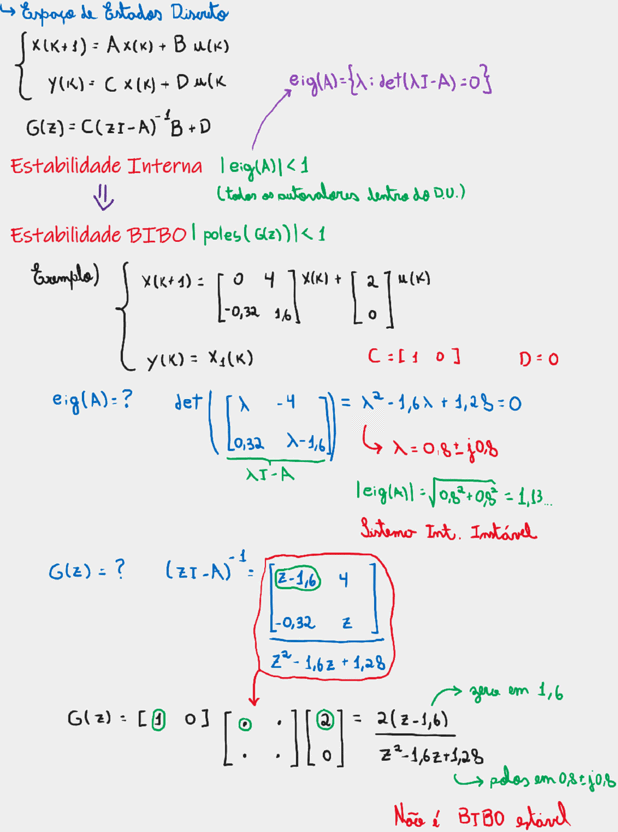 ↳ Espaço de Estados Discreto
x(k+1) = A x(k) + B u(k)
y(k) = C x(k) + D u(k
eig(A)={λ: det(λI-A)=0}
G(z) = C(zI-A)⁻¹B + D
Estabilidade Interna |eig(A)| < 1
(todos os autovalores dentro do D.U.)
⇓
Estabilidade BIBO | poles(G(z))| < 1
Exemplo) x(k+1) = [0 4; -0,32 1,6] x(k) + [2; 0] u(k)
y(k) = x₁(k) C = [1 0] D = 0
eig(A) = ? det([λ -4; 0,32 λ-1,6]) = λ² - 1,6λ + 1,28 = 0
λI-A
↳ λ = 0,8 ± j0,8
|eig(A)| = √0,8² + 0,8² = 1,13...
Sistema Int. Instável
G(z) = ? (zI-A)⁻¹ = [z-1,6 4; -0,32 z]
z² - 1,6z + 1,28
→ zero em 1,6
G(z) = [1 0] [· ·; · ·] [2; 0] = 2(z-1,6)
z² - 1,6z + 1,28
↳ polos em 0,8 ± j0,8
Não é BIBO estável